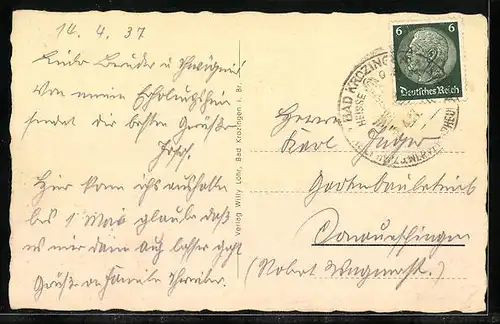 14. 4. 37
Lieber Bruder u Schwägerin
Von meiner Erholungskur
sendet die besten Grüße
Josef.
Hier kann ichs aushalten
bis 1 Mai glaube daß
es mir dann auch besser geht
Grüße an Familie
Verlag Willy Lohr, Bad Krozingen i. Br.
6 6
Deutsches Reich
BAD KROZINGEN
HEISSE
Herrn
Karl Jäger
Gartenbaubetrieb
Donaueschingen
(Robert Wagnerstr.)